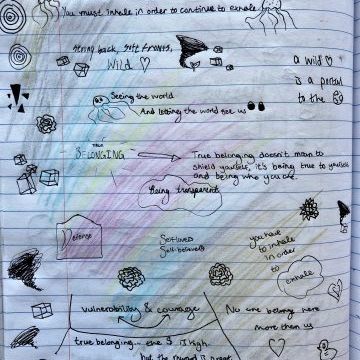 You must inhale in order to continue to exhale.
Strong back, soft fronts,
Wild ♡
a wild ♡
is a portal
to the
Seeing the world
And letting the world see us
TRUE
BELONGING
True belonging doesn't mean to
shield yourself, it's being true to yourself
and being who you are.
Being transparent
Defense
Self-love
Self-believe
you have
to inhale
in order
to
exhale
vulnerability & courage
No one belong here
more than us
true belonging... the $ is high,
but the reward is great.